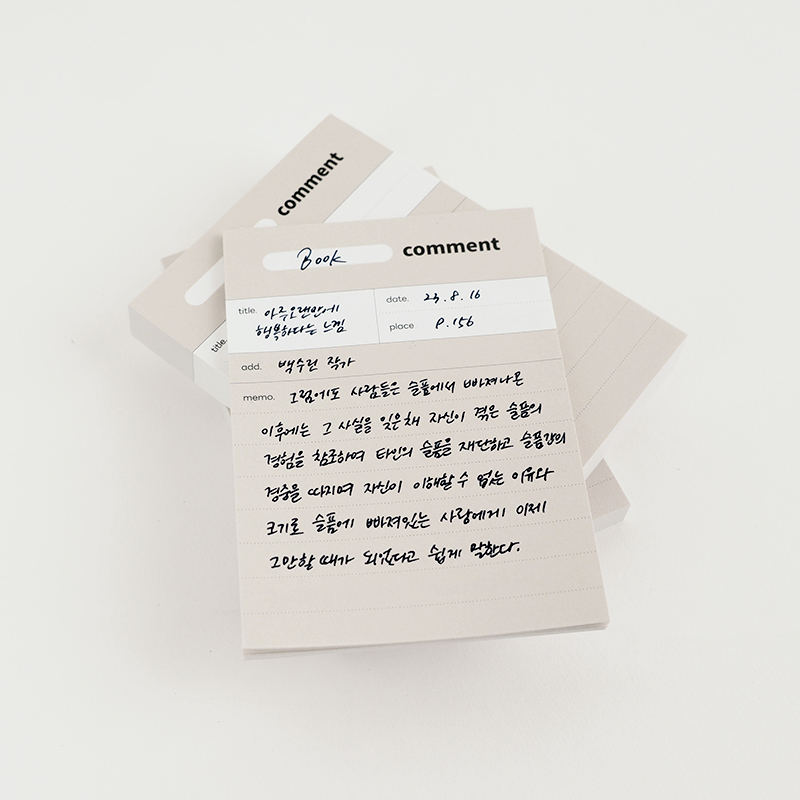 comment
title.
Book
comment
title. 아주 오랜만에
행복하다는 느낌
date. 23. 8. 16
place P. 156
add. 백수린 작가
memo. 그럼에도 사람들은 슬픔에서 빠져나온
이후에는 그 사실을 잊은채 자신이 겪은 슬픔의
경험을 참조하여 타인의 슬픔을 재단하고 슬픔간의
경중을 따지며 자신이 이해할 수 없는 이유와
크기로 슬픔에 빠져있는 사람에게 이제
그만할 때가 되었다고 쉽게 말한다.